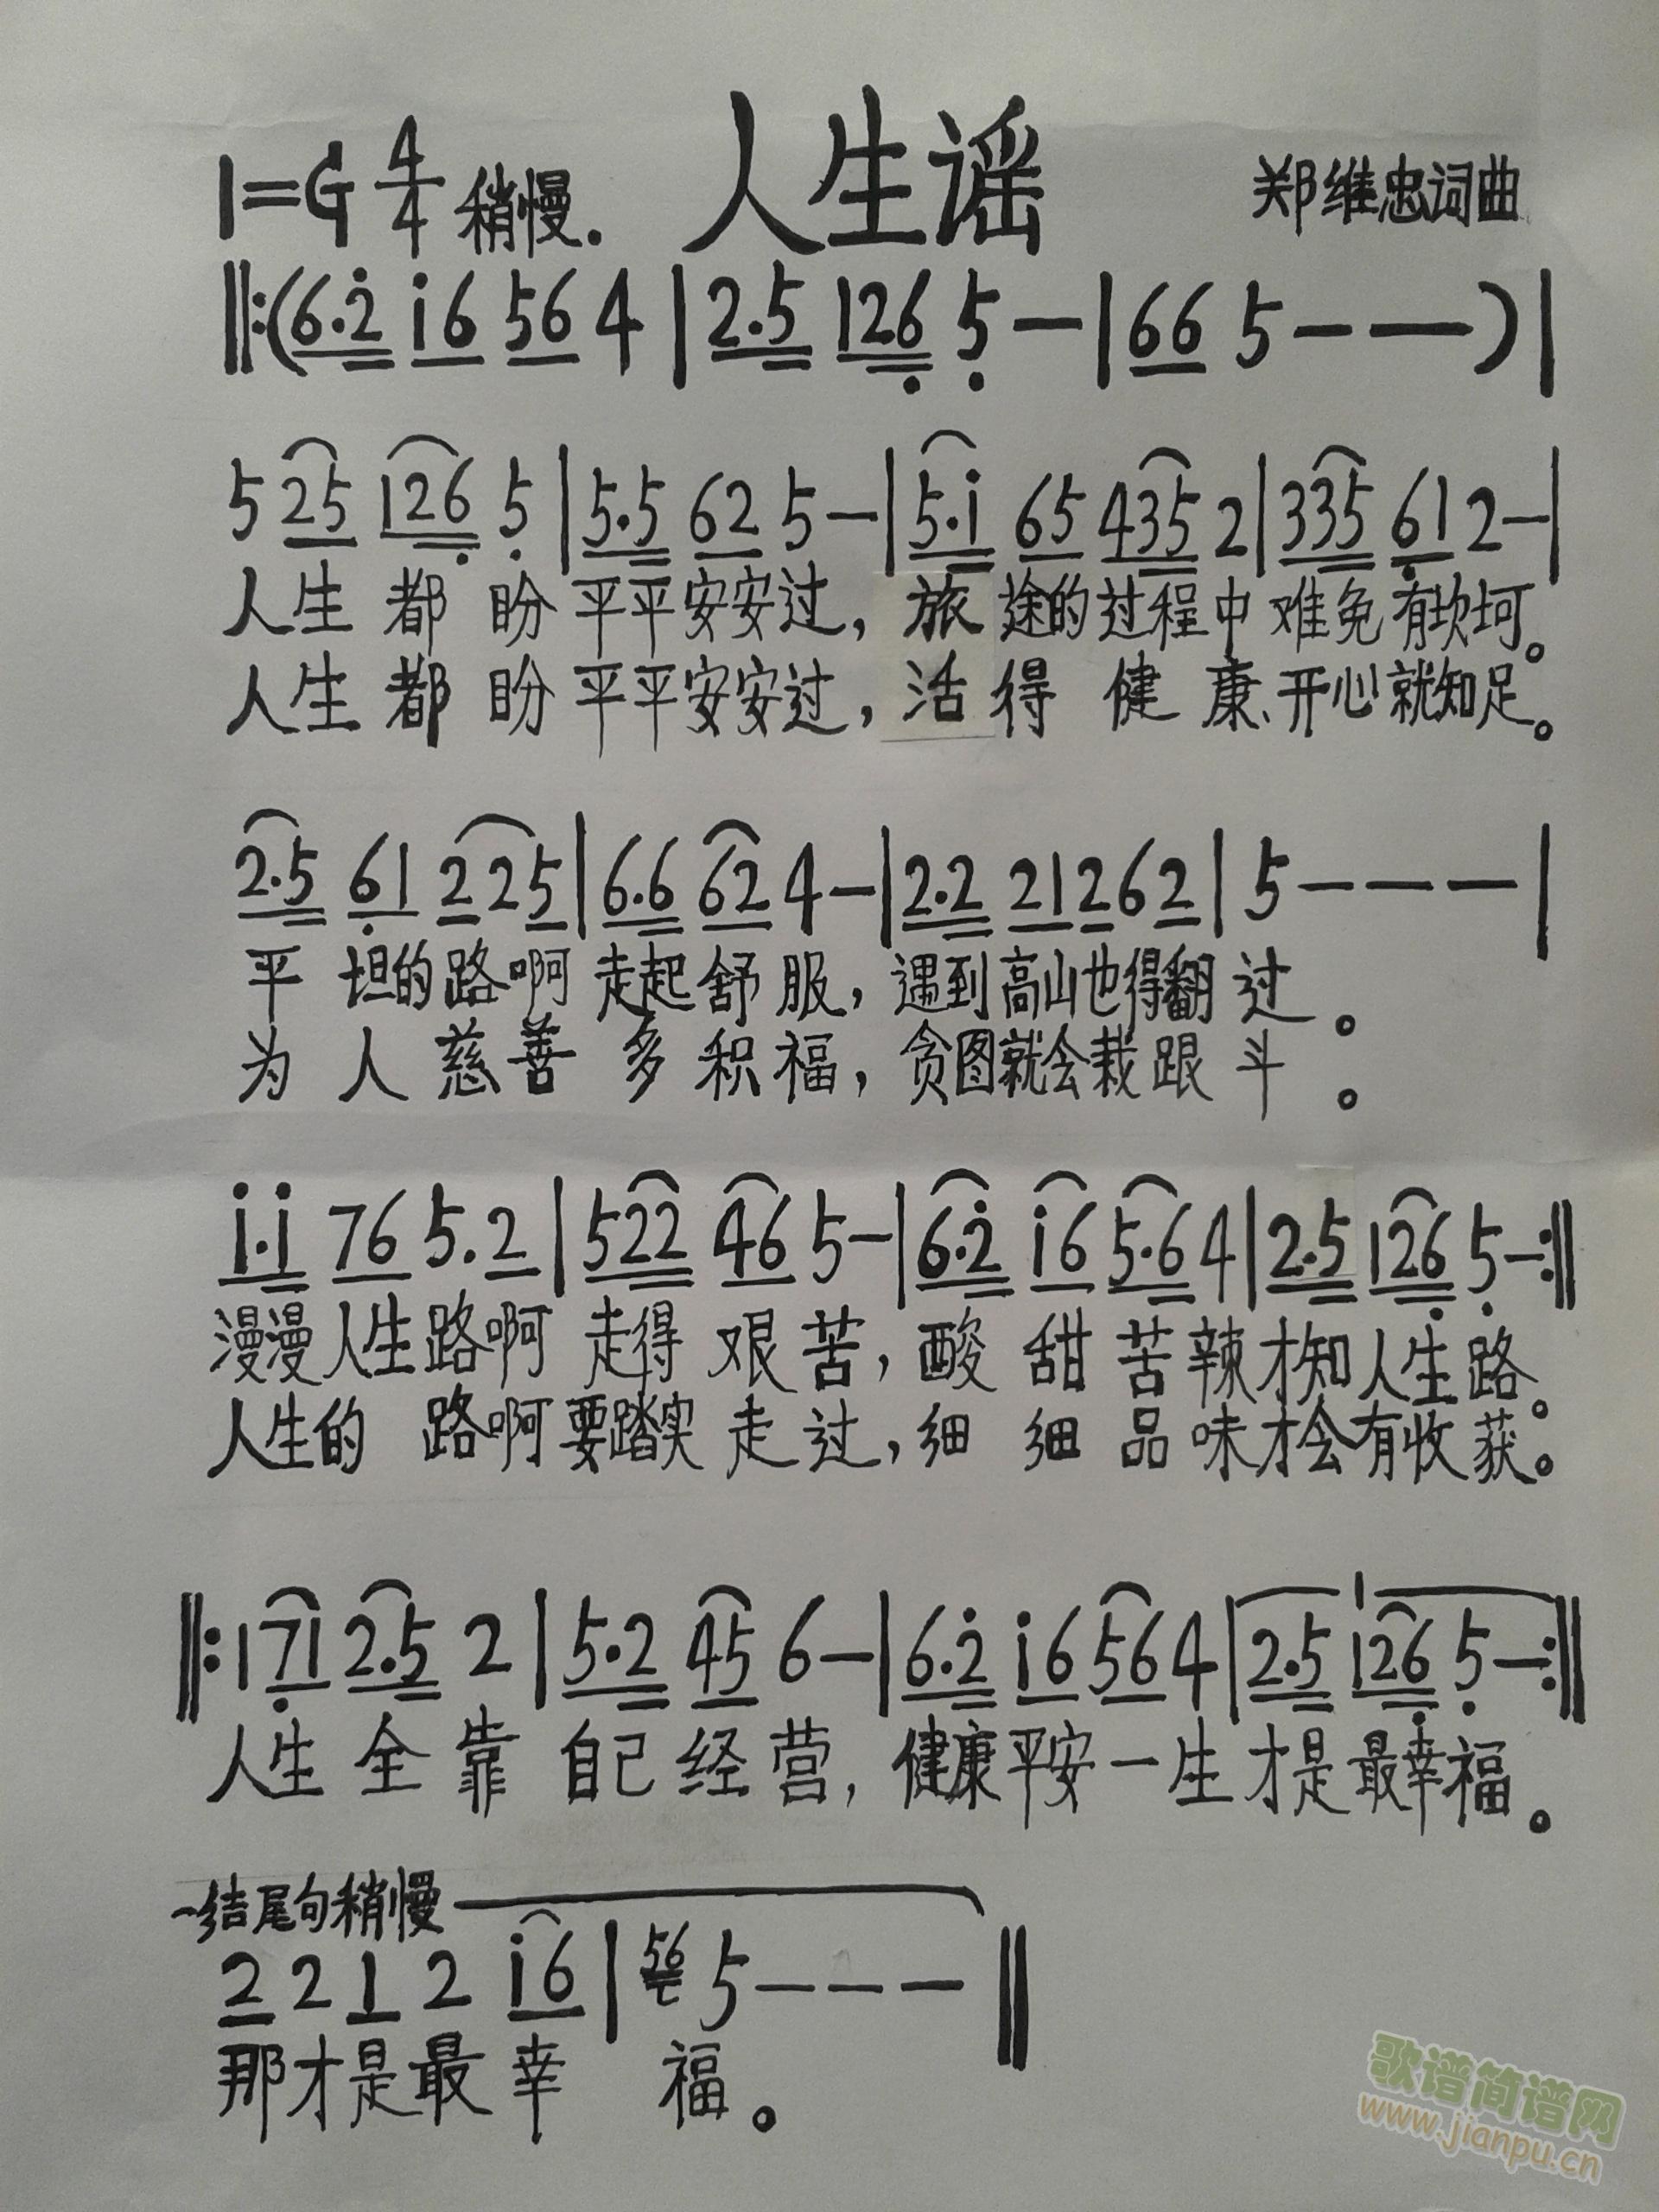 人生谣
1=G 4/4 稍慢. 郑维忠词曲
‖:(6.2̇ i6 56 4 | 2.5 126̣ 5̣ — | 66 5 — — —) |
5 25 126̣ 5̣ | 5.5 62 5 — | 5.i 65 435 2 | 335 6̣1 2 — |
人生都盼平平安安过,旅途的过程中难免有坎坷。
人生都盼平平安安过,活得健康、开心就知足。
2.5 6̣1 225 | 6.6 62 4 — | 2.2 21262 | 5 — — — |
平坦的路啊走起舒服,遇到高山也得翻过。
为人慈善多积福,贪图就会栽跟斗。
i.i 76 5.2 | 522 46 5 — | 6.2̇ i6 5.6 4 | 2.5 126̣ 5̣ — :‖
漫漫人生路啊走得艰苦,酸甜苦辣才知人生路。
人生的路啊要踏实走过,细细品味才会有收获。
‖: 17̣1 2.5 2 | 5.2 45 6 — | 6.2̇ i6 56 4 | 2.5 126̣ 5̣ — :‖
人生全靠自己经营,健康平安一生才是最幸福。
结尾句稍慢
2 2 1 2 i6 | 56 5 — — — ‖
那才是最幸福。
歌谱简谱网
www.jianpu.cn